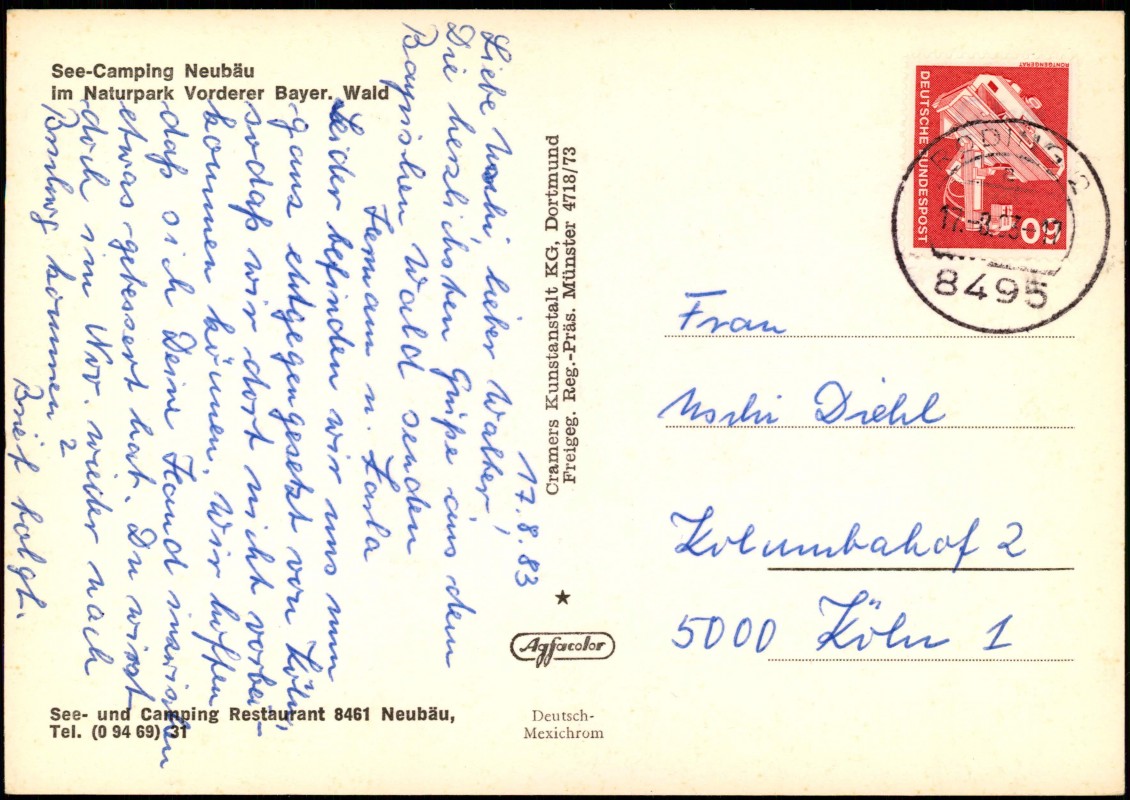 See-Camping Neubäu
im Naturpark Vorderer Bayer. Wald
17.8.83
Liebe Uschi, lieber Walter,
Die herzlichsten Grüße aus dem
Bayrischen Wald senden
Hermann u. Karla
Leider befinden wir uns nun
ganz entgegengesetzt von Köln,
sodaß wir dort nicht vorbei-
kommen können. Wir hoffen
daß sich Deine Hand inzwischen
etwas gebessert hat. Du wirst
doch im Nov. wieder nach
kommen?
Brief folgt.
See- und Camping Restaurant 8461 Neubäu,
Tel. (0 94 69) 31
Cramers Kunstanstalt KG, Dortmund
Freigeg. Reg.-Präs. Münster 4718/73
★
Agfacolor
Deutsch-
Mexichrom
RÖNTGENGERÄT
DEUTSCHE BUNDESPOST
60
RODING 2
17.-8.83-17
8495
Frau
Uschi Diehl
Kolumbahof 2
5000 Köln 1